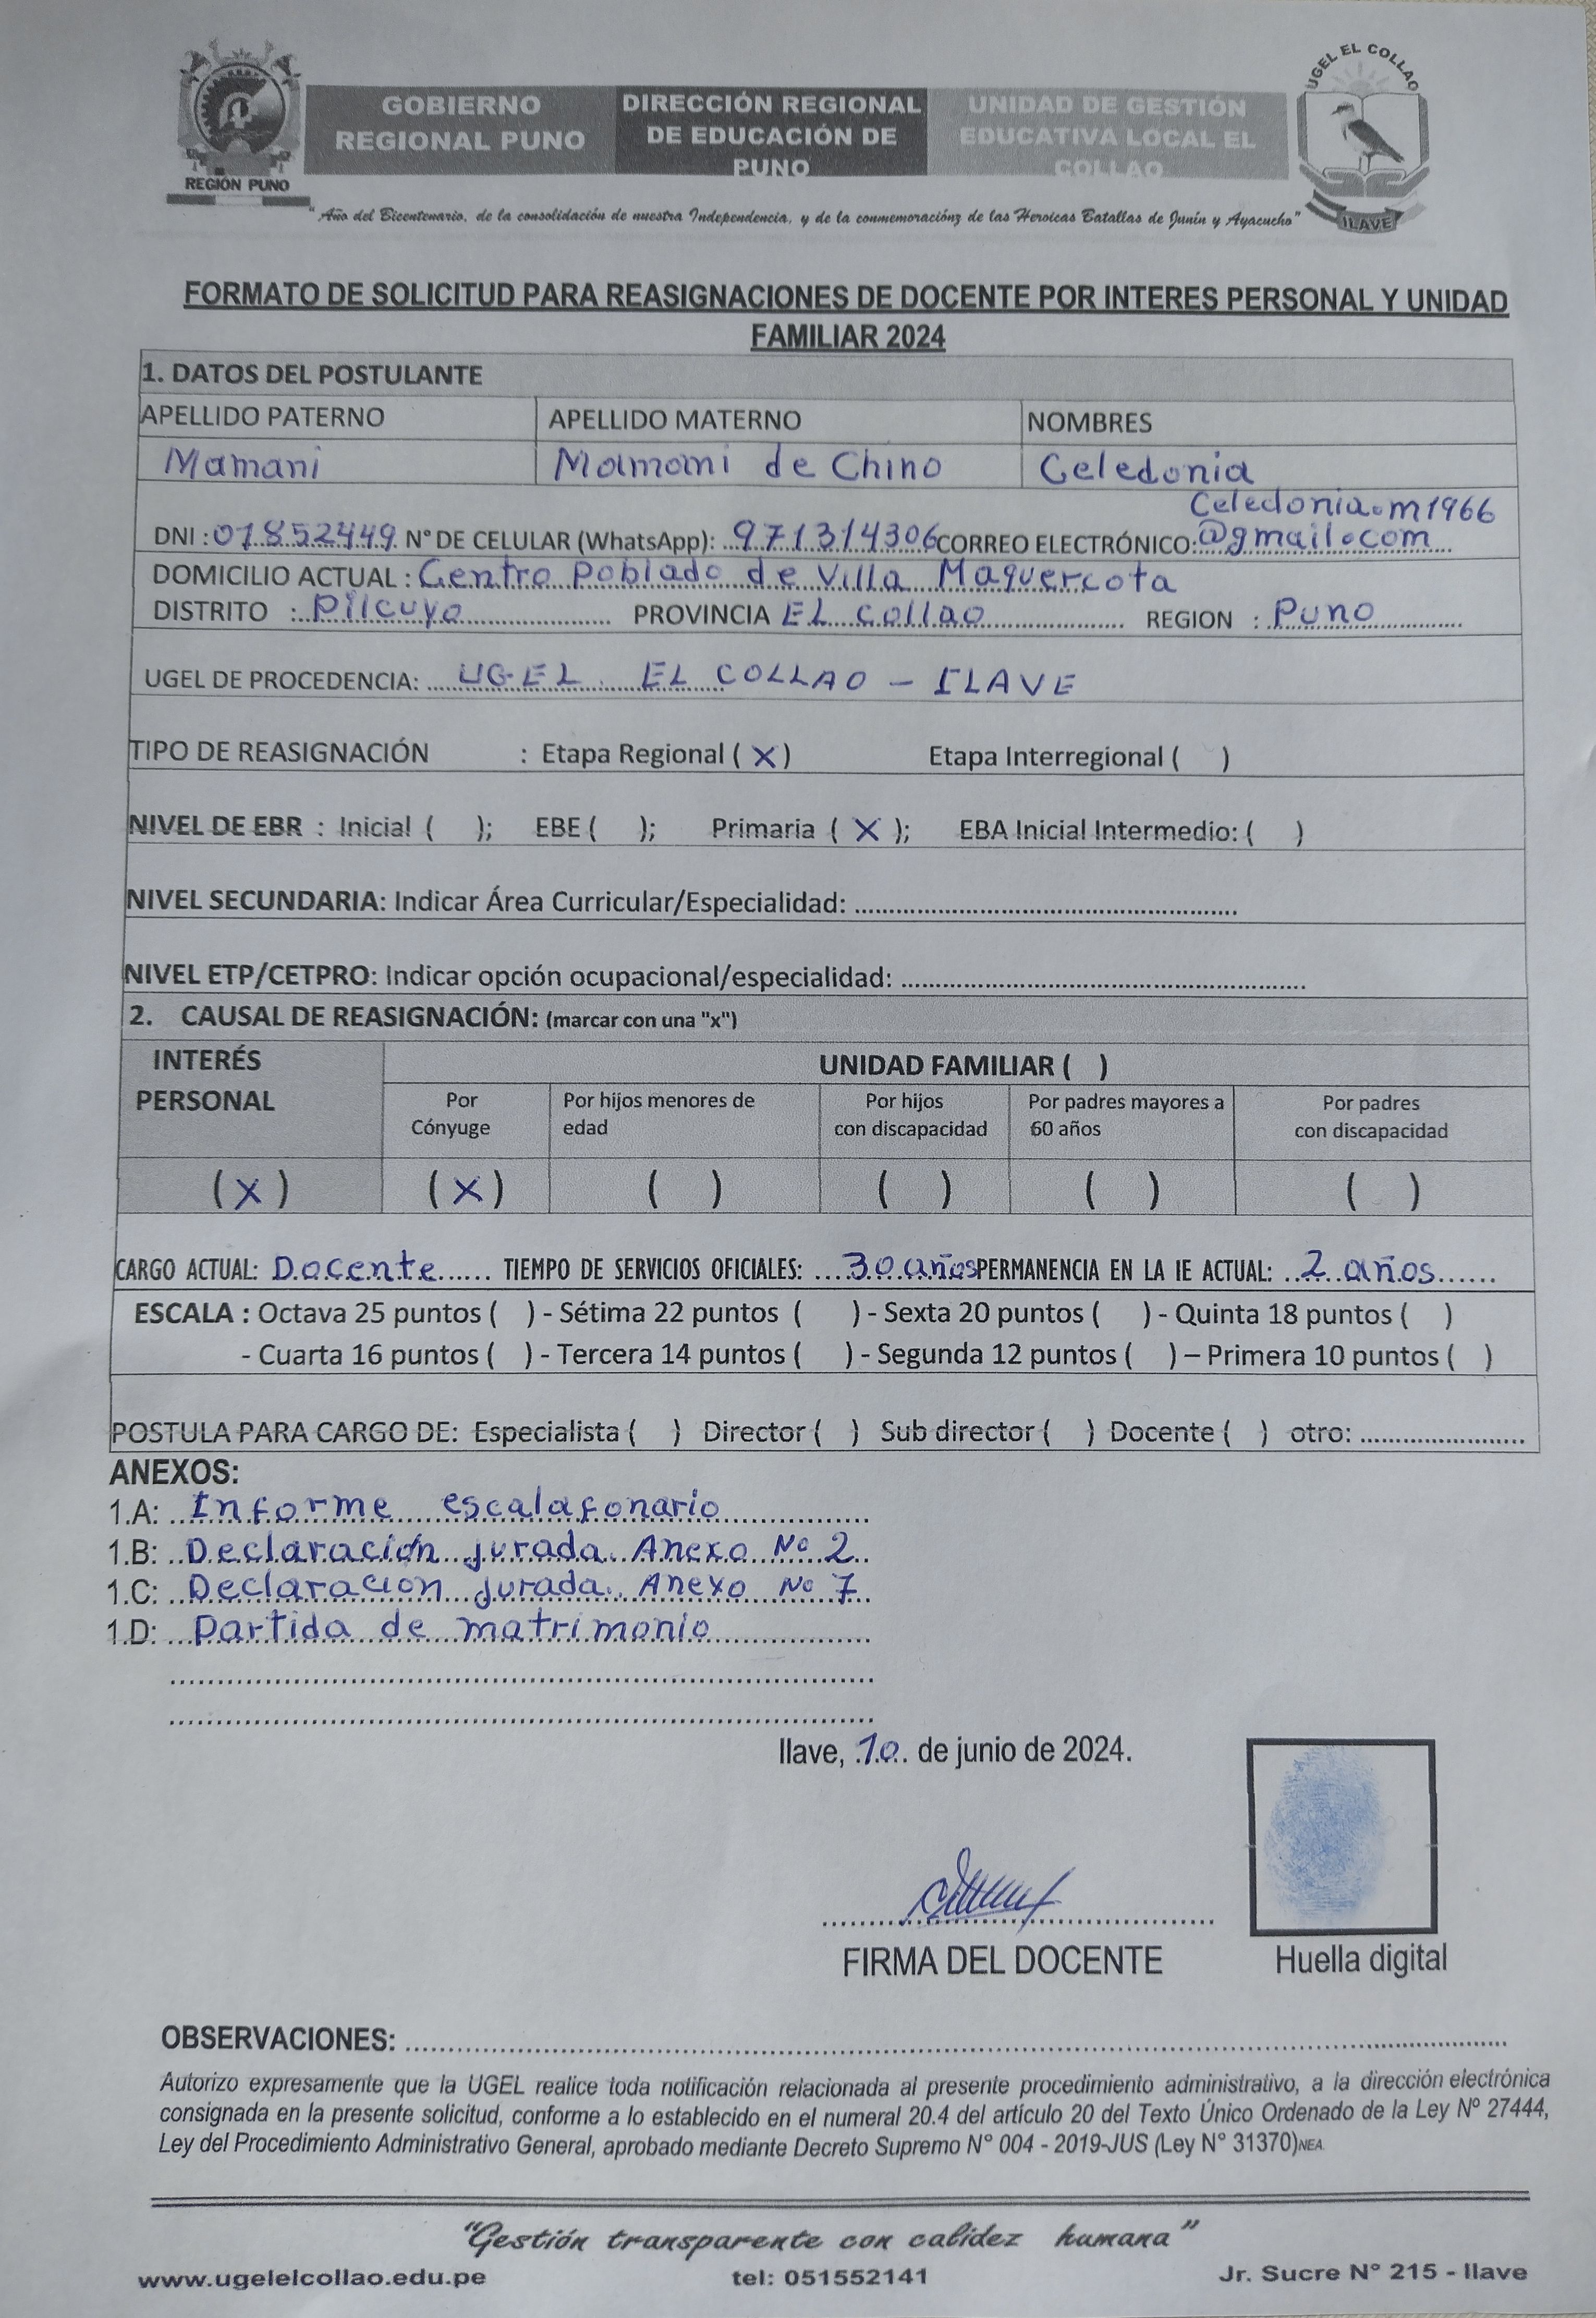 GOBIERNO REGIONAL PUNO
DIRECCIÓN REGIONAL DE EDUCACIÓN DE PUNO
UNIDAD DE GESTIÓN EDUCATIVA LOCAL EL COLLAO
REGIÓN PUNO
UGEL EL COLLAO
ILAVE
"Año del Bicentenario, de la consolidación de nuestra Independencia, y de la conmemoraciónz de las Heroicas Batallas de Junín y Ayacucho"
FORMATO DE SOLICITUD PARA REASIGNACIONES DE DOCENTE POR INTERES PERSONAL Y UNIDAD
FAMILIAR 2024
1. DATOS DEL POSTULANTE
APELLIDO PATERNO APELLIDO MATERNO NOMBRES
Mamani Mamani de Chino Celedonia
Celedonia.m1966
DNI : 01852449 N° DE CELULAR (WhatsApp): 971314306 CORREO ELECTRÓNICO: @gmail.com
DOMICILIO ACTUAL : Centro Poblado de Villa Maquercota
DISTRITO : Pilcuyo PROVINCIA EL Collao REGION : Puno
UGEL DE PROCEDENCIA: UGEL EL COLLAO – ILAVE
TIPO DE REASIGNACIÓN : Etapa Regional ( X ) Etapa Interregional ( )
NIVEL DE EBR : Inicial ( ); EBE ( ); Primaria ( X ); EBA Inicial Intermedio: ( )
NIVEL SECUNDARIA: Indicar Área Curricular/Especialidad: ........................................................
NIVEL ETP/CETPRO: Indicar opción ocupacional/especialidad: ........................................................
2. CAUSAL DE REASIGNACIÓN: (marcar con una "x")
INTERÉS PERSONAL
UNIDAD FAMILIAR ( )
Por Cónyuge
Por hijos menores de edad
Por hijos con discapacidad
Por padres mayores a 60 años
Por padres con discapacidad
( X ) ( X ) ( ) ( ) ( ) ( )
CARGO ACTUAL: Docente...... TIEMPO DE SERVICIOS OFICIALES: ....30 años PERMANENCIA EN LA IE ACTUAL: ..2 años......
ESCALA : Octava 25 puntos ( ) - Sétima 22 puntos ( ) - Sexta 20 puntos ( ) - Quinta 18 puntos ( )
- Cuarta 16 puntos ( ) - Tercera 14 puntos ( ) - Segunda 12 puntos ( ) – Primera 10 puntos ( )
POSTULA PARA CARGO DE: Especialista ( ) Director ( ) Sub director ( ) Docente ( ) otro: ........................
ANEXOS:
1.A: Informe escalafonario
1.B: Declaración jurada Anexo Nº 2
1.C: Declaracion jurada Anexo Nº 7
1.D: Partida de matrimonio
Ilave, 10 de junio de 2024.
FIRMA DEL DOCENTE Huella digital
OBSERVACIONES: ........................................................
Autorizo expresamente que la UGEL realice toda notificación relacionada al presente procedimiento administrativo, a la dirección electrónica
consignada en la presente solicitud, conforme a lo establecido en el numeral 20.4 del artículo 20 del Texto Único Ordenado de la Ley Nº 27444,
Ley del Procedimiento Administrativo General, aprobado mediante Decreto Supremo N° 004 - 2019-JUS (Ley N° 31370)NEA.
"Gestión transparente con calidez humana"
www.ugelelcollao.edu.pe tel: 051552141 Jr. Sucre N° 215 - Ilave